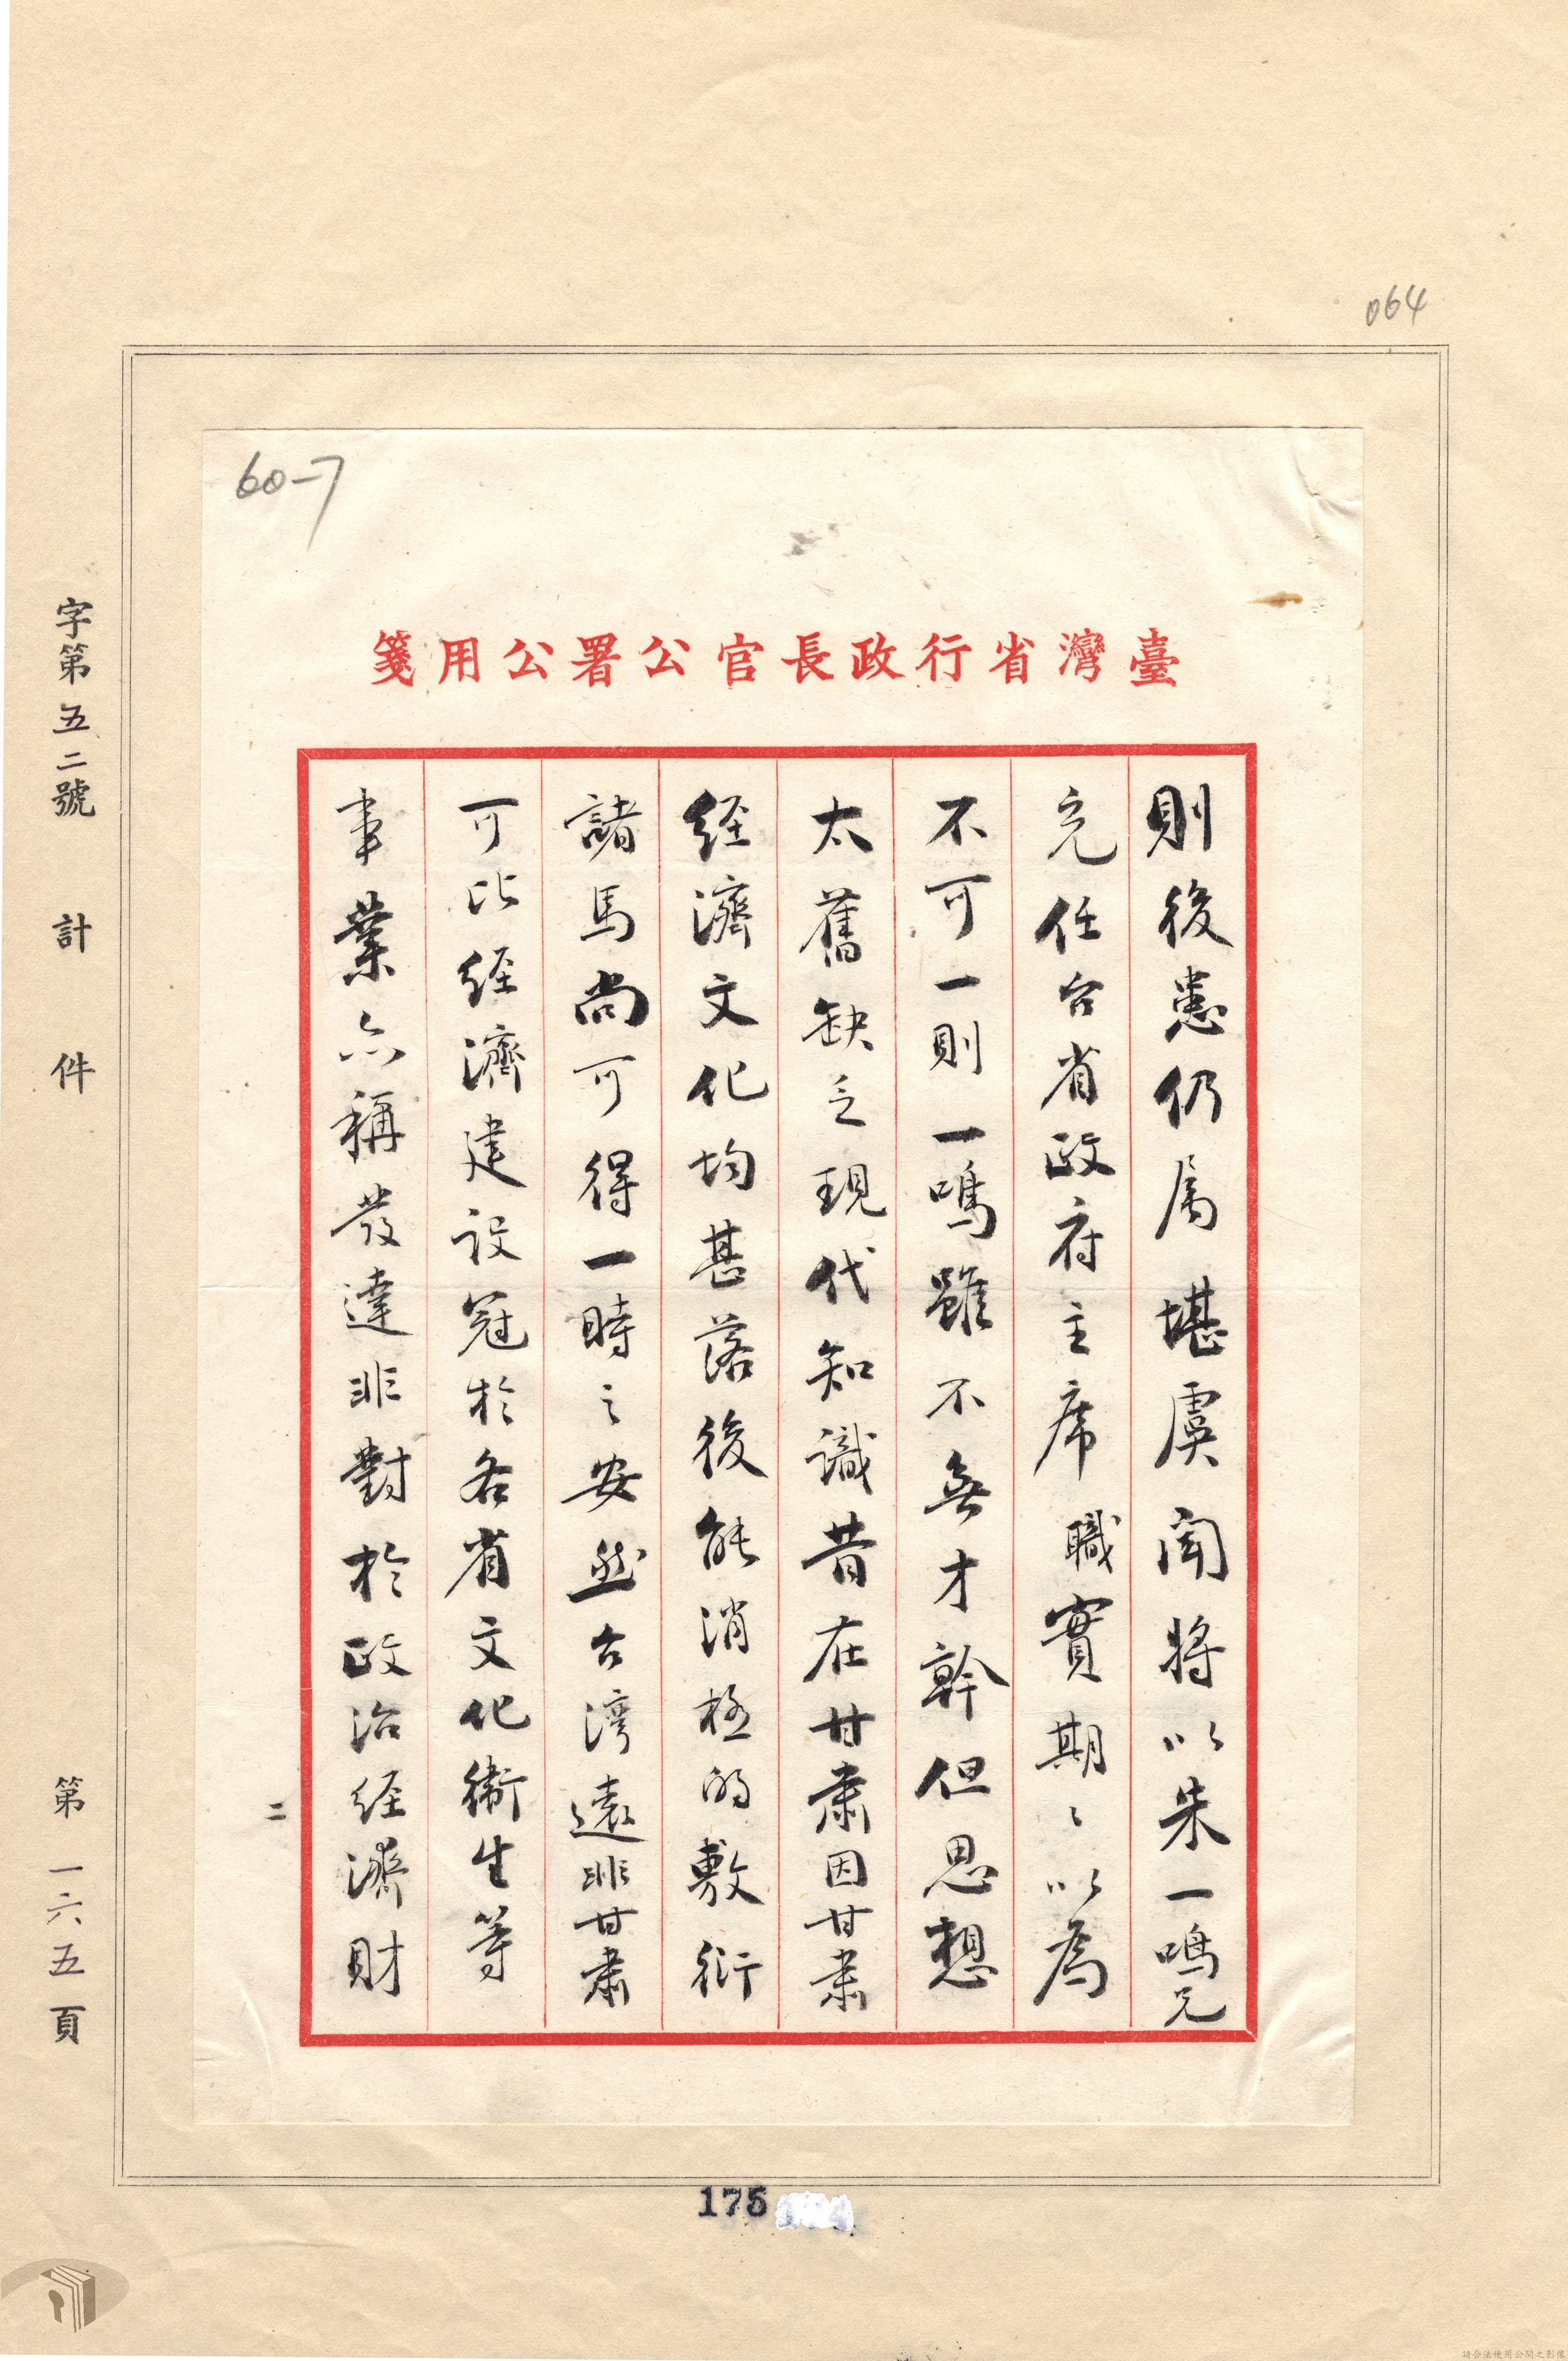 064
60-7
臺灣省行政長官公署公用箋
則後患仍屬堪虞聞將以朱一鳴兄
充任台省政府主席職實期々以為
不可一則一鳴雖不無才幹但思想
太舊缺乏現代知識昔在甘肅因甘肅
经濟文化均甚落後能消極的敷衍
諸馬尚可得一時之安然台湾遠非甘肅
可比经濟建設冠於各省文化衛生等
事業亦稱發達非對於政治经濟財
二
字第五二號 計 件 第一六五頁
175
請合法使用公開之影像